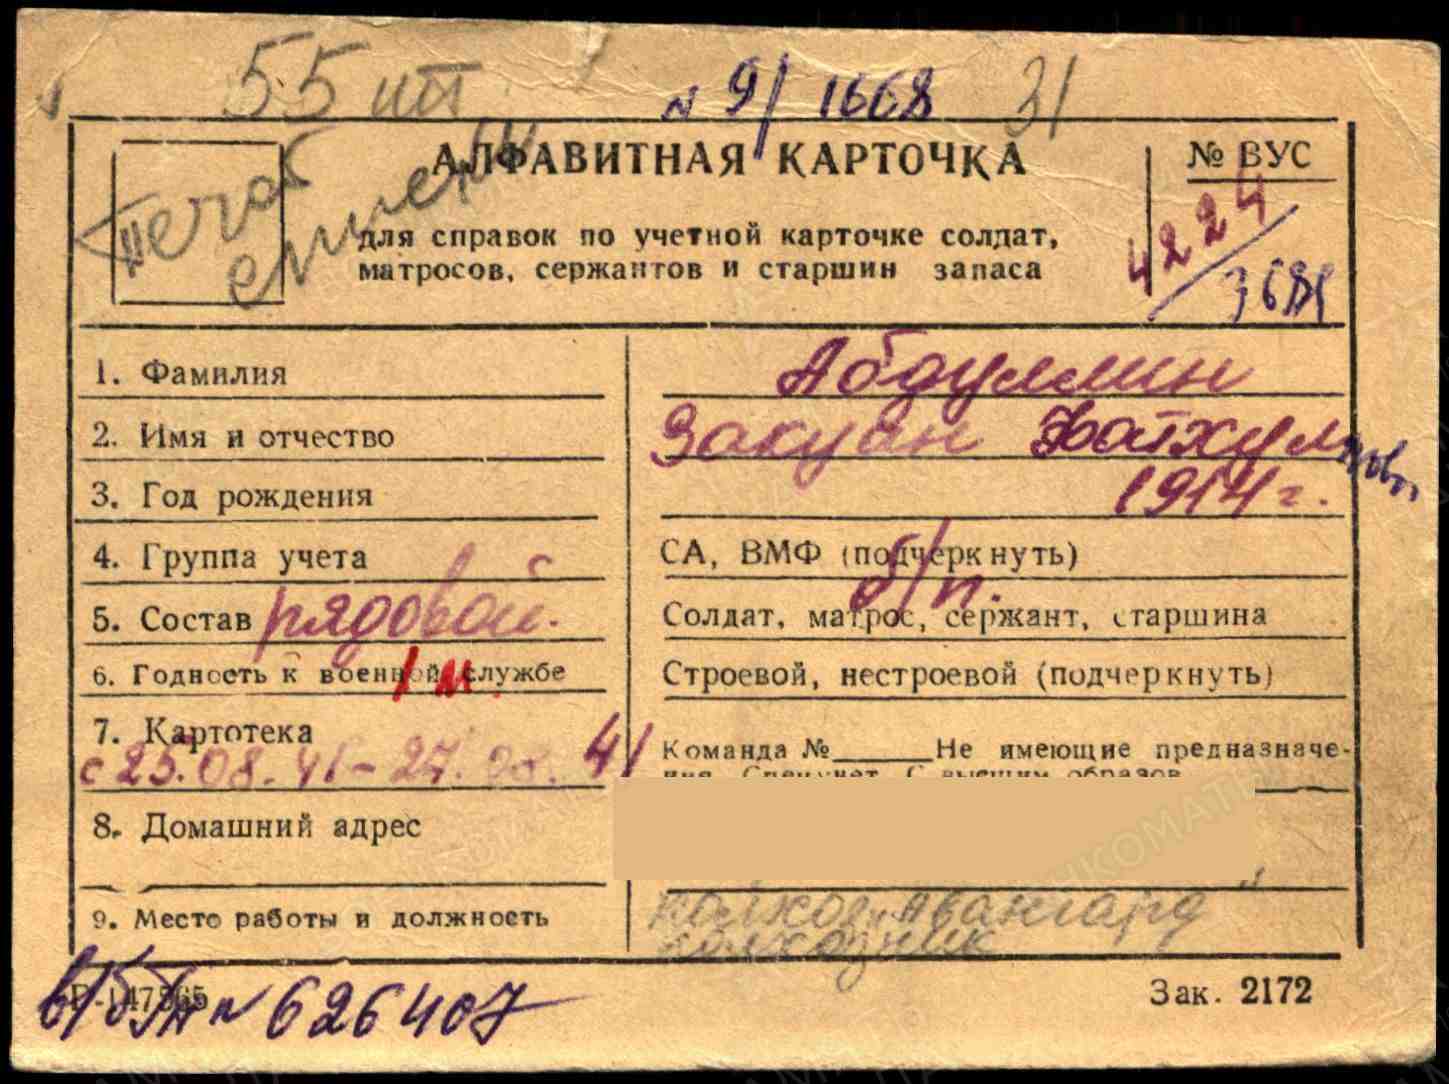 55 ит
N 9/1668 31
АЛФАВИТНАЯ КАРТОЧКА
№ ВУС
для справок по учетной карточке солдат,
матросов, сержантов и старшин запаса
4224
1. Фамилия Абдуллин
2. Имя и отчество Закуан
3. Год рождения 1914 г.
4. Группа учета СА, ВМФ (подчеркнуть)
б/п.
5. Состав рядовой. Солдат, матрос, сержант, старшина
6. Годность к военной службе Строевой, нестроевой (подчеркнуть)
7. Картотека Команда № Не имеющие предназначе-
с 25.08.41 - 27. 41
8. Домашний адрес
9. Место работы и должность колхоз „Авангард"
колхозник
N 626407
Зак. 2172